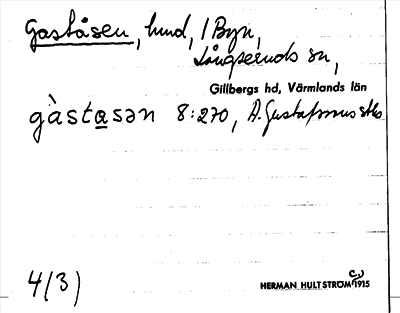 Gaståsen, hmd, i Byn,
Långseruds sn,
Gillbergs hd, Värmlands län
gàstasən 8:270, A. Gustafssons stks
4(3)
HERMAN HULTSTRÖM C:a 1915